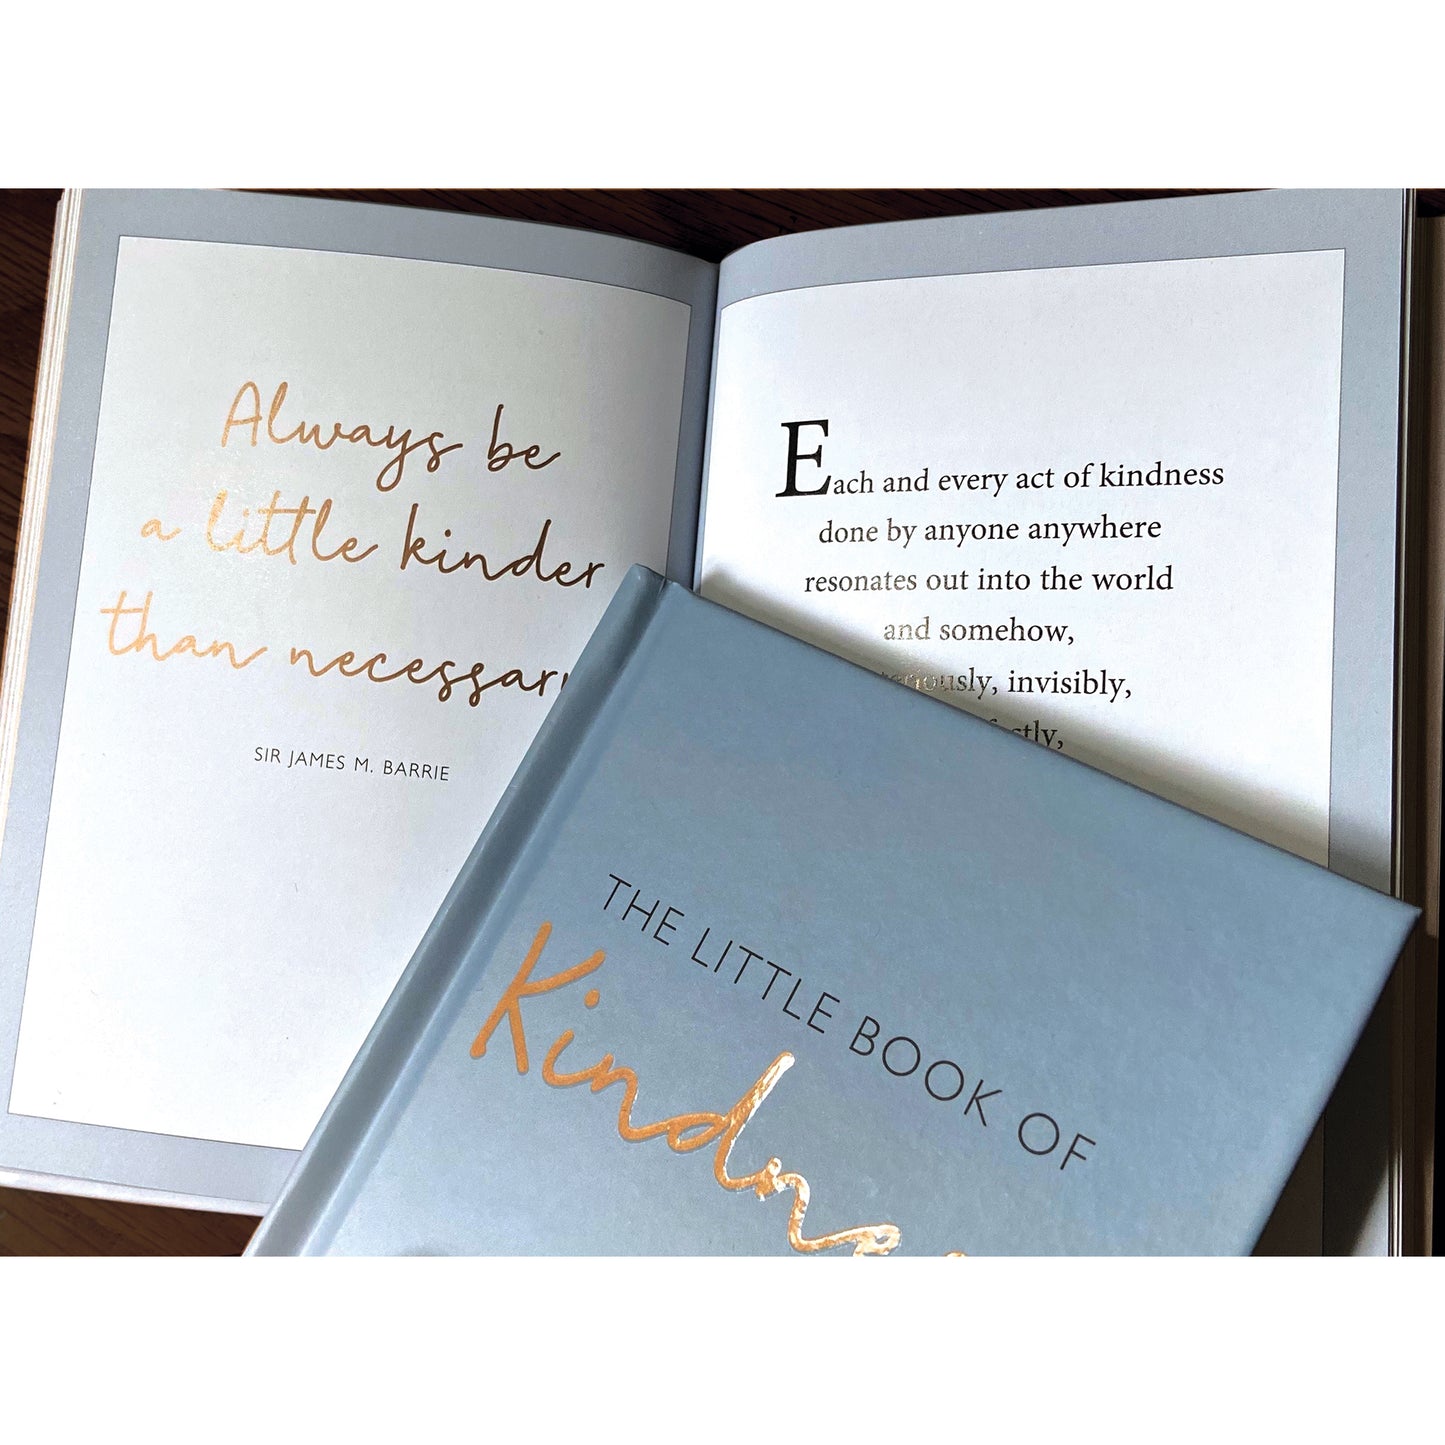 Always be
a little kinder
than
SIR JAMES M. BARRIE
Each and every act of kindness
done by anyone anywhere
resonates out into the world
and somehow,
invisibly,
THE LITTLE BOOK OF